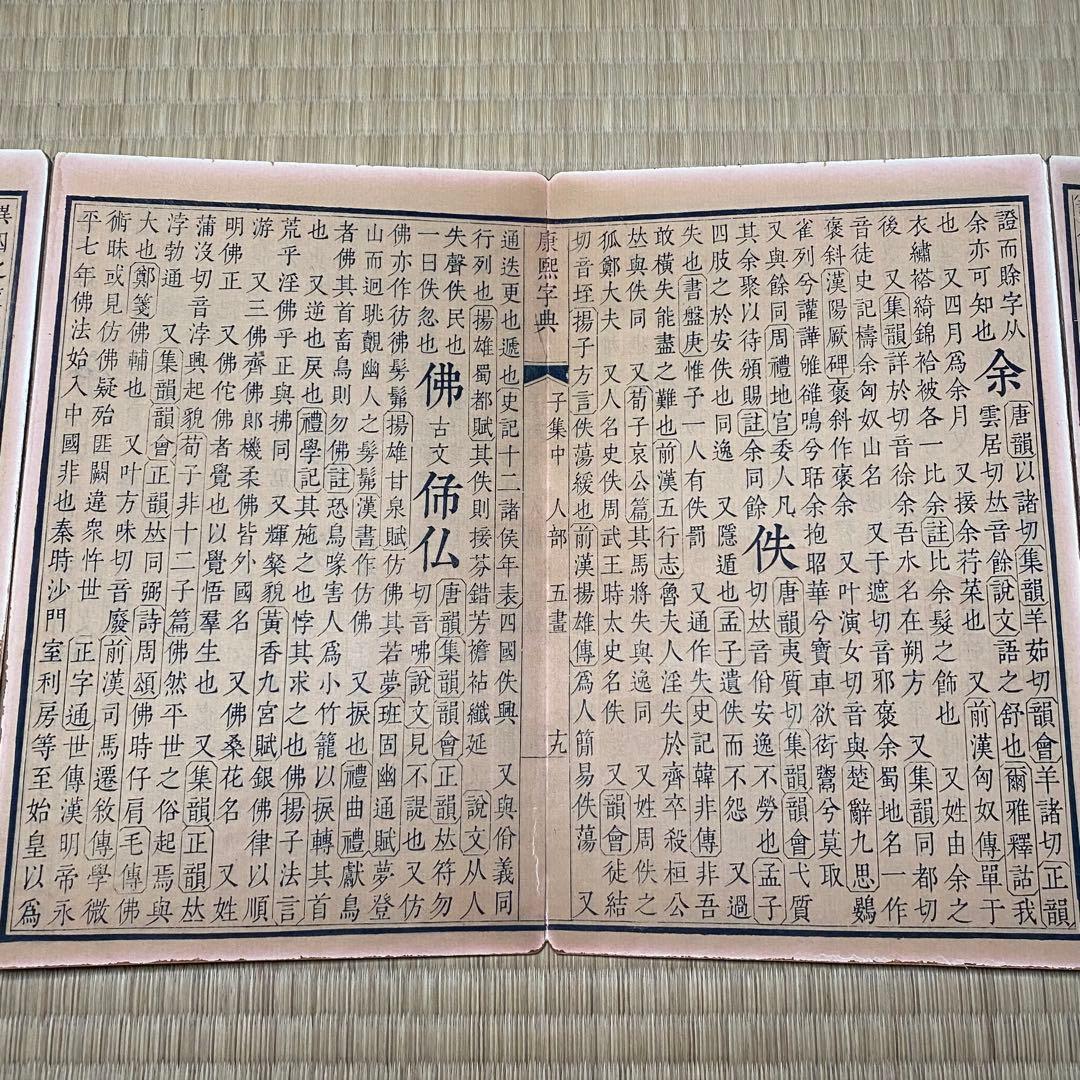 證而賒字从
余亦可知也
余
唐韻以諸切集韻羊茹切韻會羊諸切正韻
雲居切𠀤音餘說文語之舒也爾雅釋詁我
也　又四月爲余月　又接余荇菜也　又前漢匈奴傳單于
衣繡袷綺錦袷被各一比余註比余髮之飾也　又姓由余之
後　又集韻詳於切音徐余吾水名在朔方　又集韻同都切
音徒史記檮余匈奴山名　又于遮切音邪褒余蜀地名一作
褒斜漢陽厥碑褒斜作褒余　又叶演女切音與楚辭九思鷃
雀列兮讙譁雊鵒鳴兮聒余抱昭華兮寶車欲衒鬻兮莫取
又與餘同周禮地官委人凡
其余聚以待頒賜註余同餘
佚
唐韻夷質切集韻韻會弋質
切𠀤音佾安逸不勞也孟子
四肢之於安佚也同逸　又隱遁也孟子遺佚而不怨　又過
失也書盤庚惟予一人有佚罰　又通作失史記韓非傳非吾
敢橫失能盡之難也前漢五行志魯夫人淫失於齊卒殺桓公
𠀤與佚同　又荀子哀公篇其馬將失與逸同　又姓周佚之
狐鄭大夫　又人名史佚周武王時太史名佚　又韻會徒結
切音垤揚子方言佚蕩緩也前漢揚雄傳爲人簡易佚蕩　又
康熙字典　子集中　人部　五畫　十九
通迭更也遞也史記十二諸侯年表四國佚興　又與佾義同
行列也揚雄蜀都賦其佚則接芬錯芳襜袩纖延　說文从人
失聲佚民也
一曰佚忽也
佛
古文
仏
唐韻集韻韻會正韻𠀤符勿
切音咈說文見不諟也又仿
佛亦作彷彿髣髴揚雄甘泉賦仿佛其若夢班固幽通賦夢登
山而迥眺覿幽人之髣髴漢書作仿佛　又捩也禮曲禮獻鳥
者佛其首畜鳥則勿佛註恐鳥喙害人爲小竹籠以捩轉其首
也　又逆也戾也禮學記其施之也悖其求之也佛揚子法言
荒乎淫佛乎正與拂同　又輝粲貌黃香九宮賦銀佛律以順
游　又三佛齊佛郎機柔佛皆外國名　又佛桑花名　又姓
明佛正　又佛佗佛者覺也以覺悟羣生也　又集韻正韻𠀤
蒲沒切音浡興起貌荀子非十二子篇佛然平世之俗起焉與
浡勃通　又集韻韻會正韻𠀤同弼詩周頌佛時仔肩毛傳佛
大也鄭箋佛輔也　又叶方味切音廢前漢司馬遷敘傳學微
術昧或見仿佛疑殆匪闕違衆忤世　正字通世傳漢明帝永
平七年佛法始入中國非也秦時沙門室利房等至始皇以爲